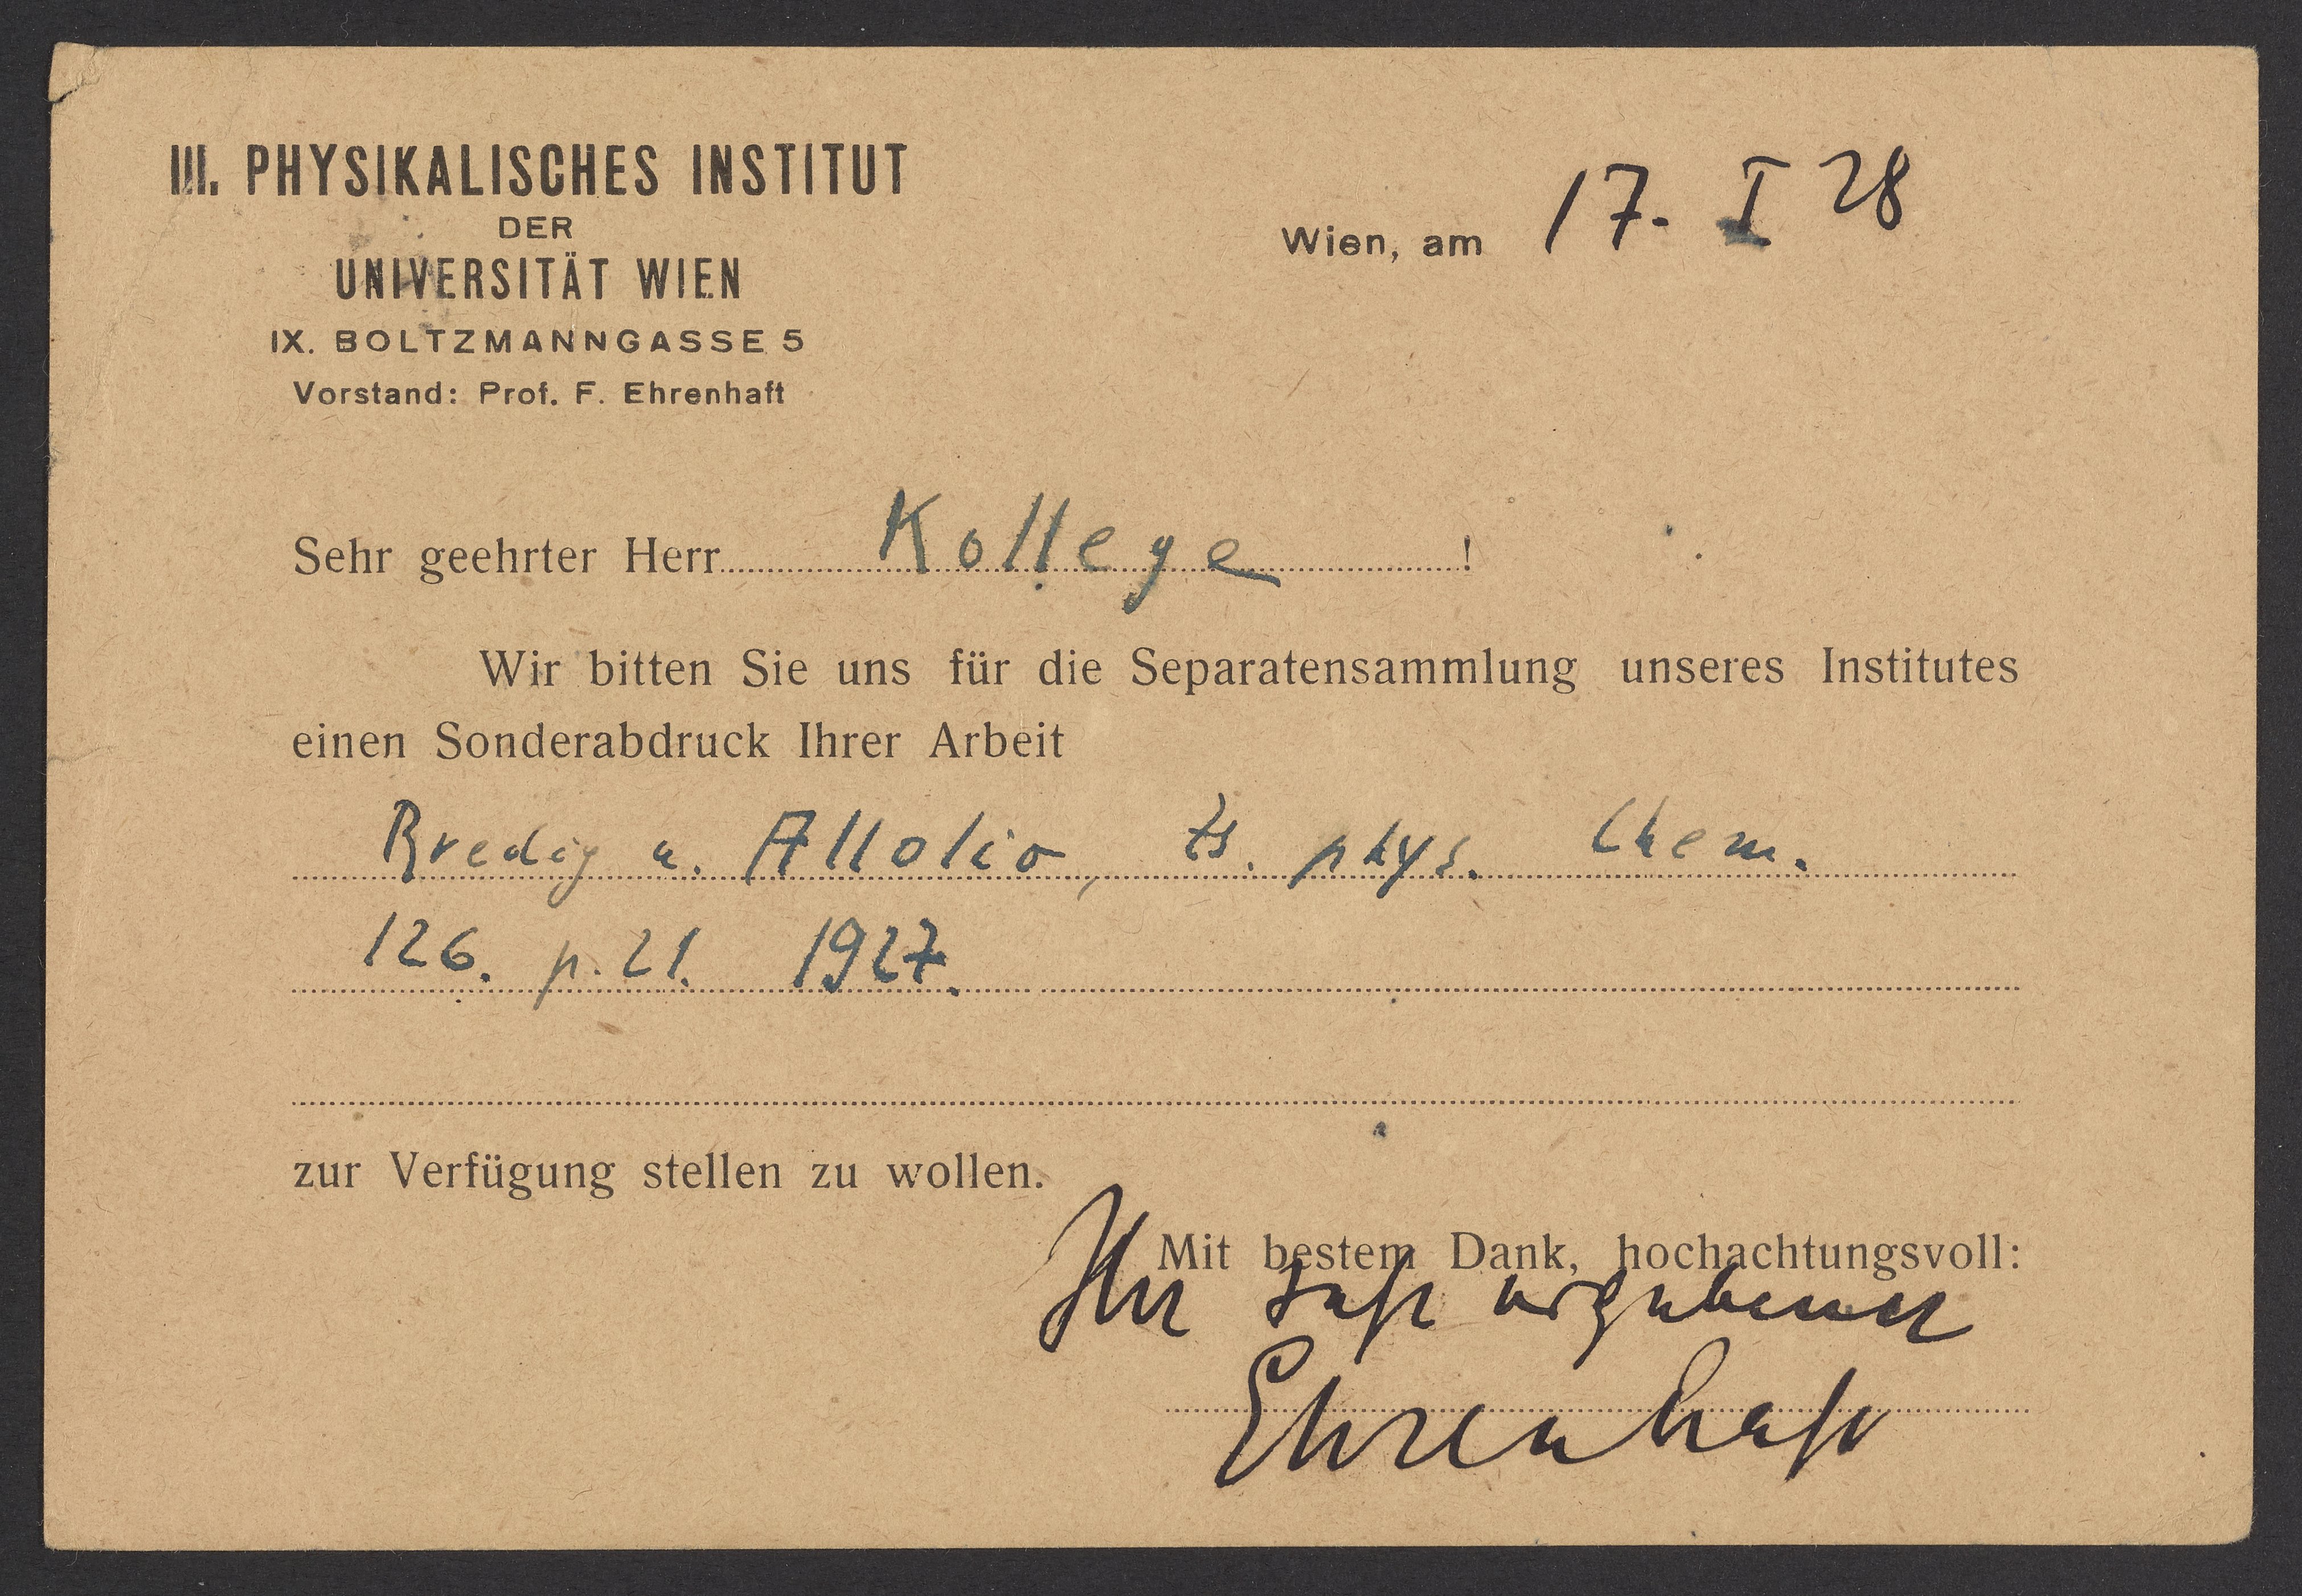 III. PHYSIKALISCHES INSTITUT
DER
UNIVERSITÄT WIEN
IX. BOLTZMANNGASSE 5
Vorstand: Prof. F. Ehrenhaft
Wien, am 17. I 28
Sehr geehrter Herr Kollege !
Wir bitten Sie uns für die Separatensammlung unseres Institutes
einen Sonderabdruck Ihrer Arbeit
Bredig u. Allolio, Zs. phys. Chem.
126. p. 21. 1927.
zur Verfügung stellen zu wollen.
Mit bestem Dank, hochachtungsvoll:
Ihr sehr ergebener
Ehrenhaft